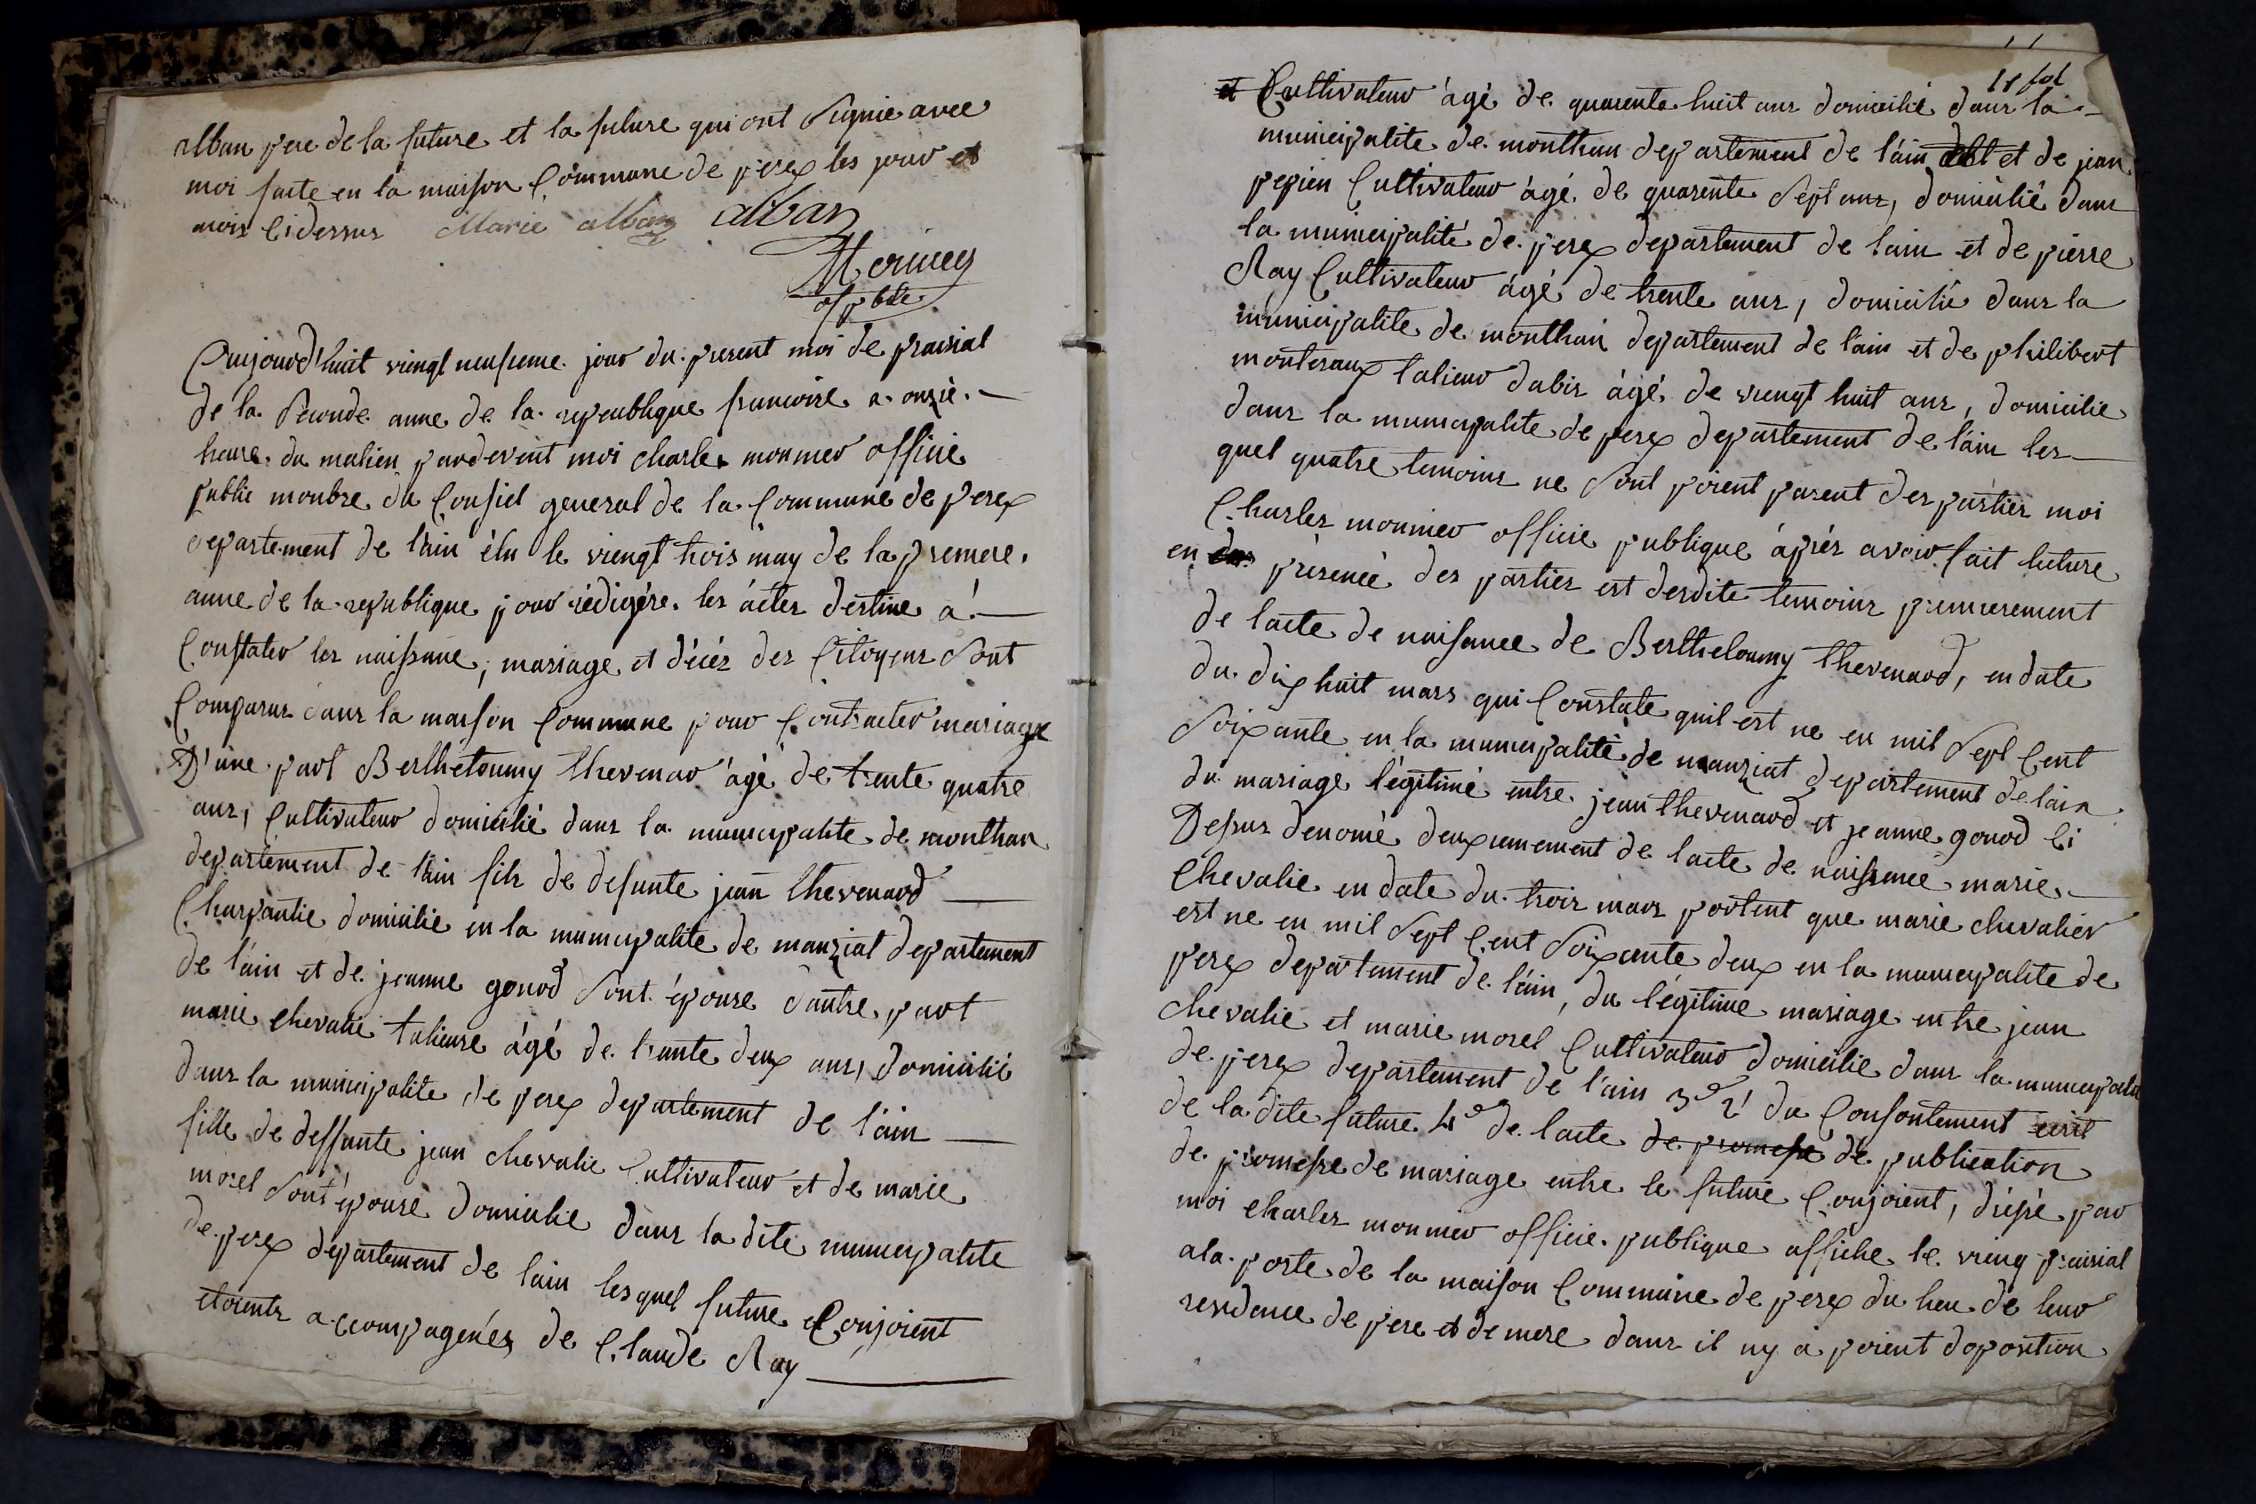 alban pere de la future et la future qui ont signié avec
moi faite en la maison Commune de perex les jour et
mois cidessus Marie alban alban
Monnier
of pble
aujourd'huit viengt neufieme jour du present moi de prairial
de la seconde anne de la republique francoise a onzie
heure du matien pardevent moi charles monnier officie
public monbre du Consiel general de la Commune de perex
departement de l'ain élu le viengt trois may de la premere
anne de la republique pour rédigére les actes destine a
Constater les naissance, mariage et décés des Citoyens sont
Comparus dans la maison Commune pour Contracter mariage
D'une part Bertheloumy thevenar âgé de trente quatre
ans, Cultivateur domicilié dans la municipalite de monthan
departement de l'ain fils de defunte jean thevenard
Charpantie domicilie en la municipalite de manziat departement
de l'ain et de jeanne gonod sont épouse dautre part
marie chevalie talieure âgé de trante deux ans, domicilié
dans la municipalite de perex departement de l'ain
fille de deffunte jean chevalie Cultivateur et de marie
morel sont épouse domicilie dans la dite municipalite
de perex departement de lain lesquel future Conjoient
etoients accompagenés de Claude Ray
11 fol
et Cultivateur âgé de quarente huit ans domicilié dans la
municipalite de monthan departement de l'ain et de jean
pepien Cultivateur âgé de quarente sept ans, domicilié dans
la municipalité de perex departement de lain et de pierre
Ray Cultivateur âgé de trente ans, domicilié dans la
municipalite de monthan departement de l'ain et de philibert
monteraux talieur dabis âgé de viengt huit ans, domicilie
dans la municipalite de perex departement de l'ain les
quel quatre temoins ne sont poient parent des parties moi
Charles monnier officie publique aprés avoir fait luture
en présence des parties est desdite temoins premierement
de lacte de naisance de Bertheloumy thevenard, en date
du dix huit mars qui Constate quil est ne en mil sept Cent
soixante en la municipalité de manziat departement de lain
du mariage légitimé entre jean thevenard et jeanne gonod Ci
Desus denomé deuxiemement de lacte de naissance marie
Chevalie en date du trois mars portent que marie chevalier
est ne en mil sept Cent soixante deux en la municipalite de
perex departement de l'ain, du légitime mariage entre jean
chevalie et marie morel Cultivateur domicilie dans la municipalite
de perex departement de l'ain 3º du Consontement écrit
de la dite future 4º de lacte de promese de publication
de promesse de mariage entre le future Conjoient, drésé par
moi charles monnier officie publique affiche le vieng prairial
ala porte de la maison Commune de perex du lieu de leur
residence de pere et de mere dans il ny a poient doposition